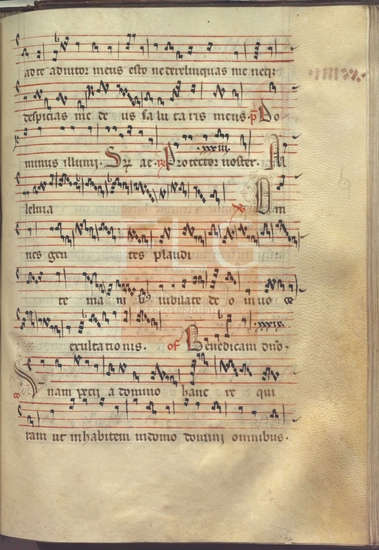 ad te adiutor meus esto ne derelinquas me neq;
despicias me de us sa lu ta ris meus. Do
minus illumi. ae. Protector noster. A
lleluia Om
nes gen tes plaudi
te ma ni b9 iubilate de o in uo ce
exultationis. of Benedicam dno.
V nam pecii a domino hanc re qui
ram ut inhabitem in domo domini omnibus.